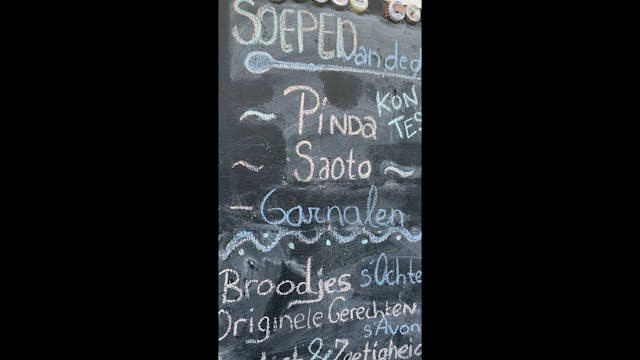 SOEPEN van de d
PINDA KON
TES
Saoto
Garnalen
Broodjes s'Ochte
Originele Gerechten
s'Avon
& Zoetigheid